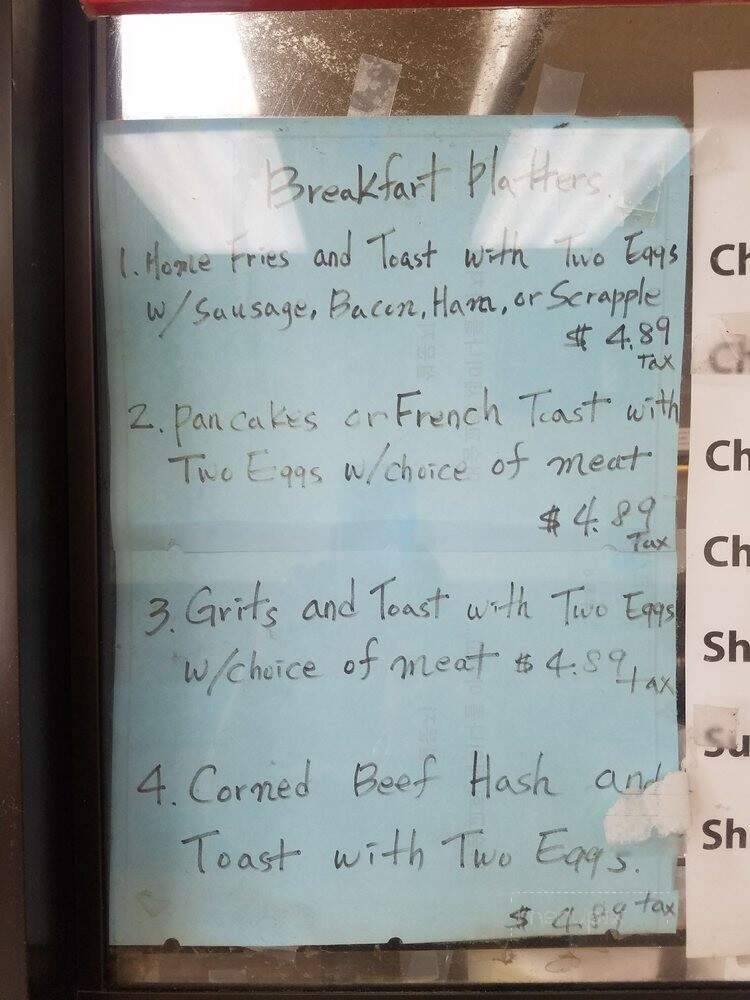 Breakfart Platters.
1. Home Fries and Toast with Two Eggs
w/Sausage, Bacon, Ham, or Scrapple
$ 4.89
Tax
2. Pancakes or French Toast with
Two Eggs w/choice of meat
$ 4.89
Tax
3. Grits and Toast with Two Eggs
w/choice of meat $ 4.89 tax
4. Corned Beef Hash and
Toast with Two Eggs.
$ 4.89 tax
Ch
Ch
Ch
Ch
Sh
Su
Sh